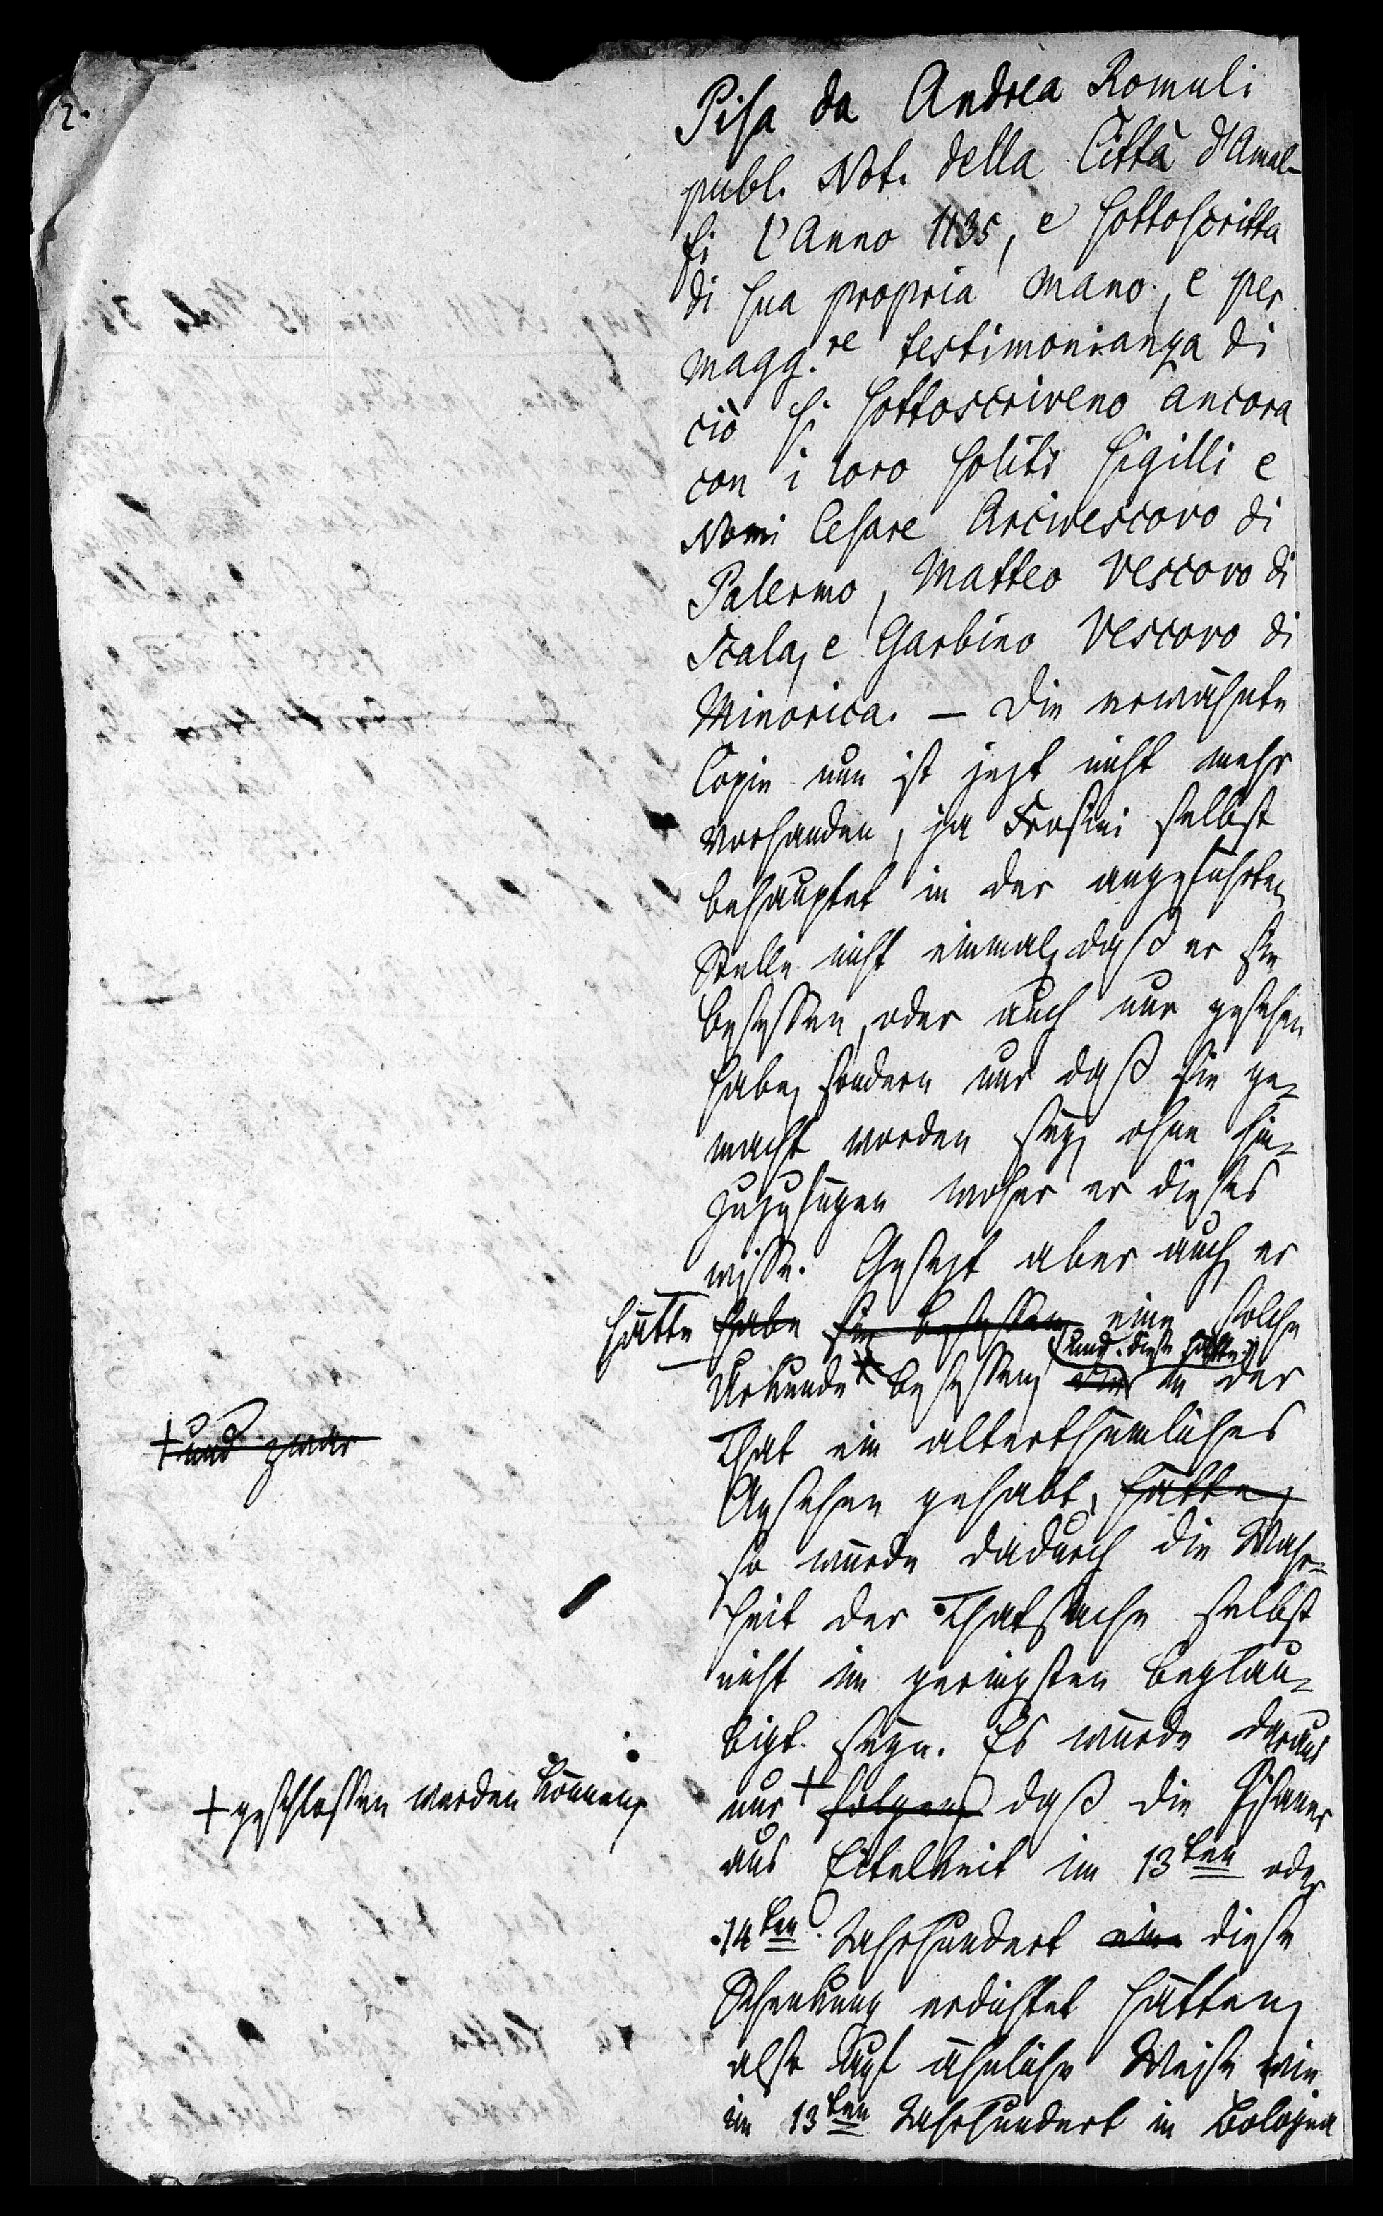 2.
Pisa da Andrea Romuli
publ. Not. della Città d'Amal-
fi l'Anno 1135, e sottoscritta
di sua propria mano, e per
magg.re testimonianza di
ciò si sottoscriveno ancora
con i loro soliti sigilli e
Nomi Cesare Arcivescovo di
Palermo, Matteo Vescovo di
Scala, e Garbino Vescovo di
Minorica. — Die erwähnte
Copie nun ist jezt nicht mehr
vorhanden, ja Frosini selbst
behauptet in der angeführten
Stelle nicht einmal, daß er sie
besessen, oder auch nur gesehen
habe, sondern nur daß sie ge-
macht worden sey, ohne hin-
zuzufügen woher er dieses
wisse. Gesezt aber auch, er
hätte habe sie besessen eine solche
(und diese hätte)
Urkunde besessen, in der
+ und zwar
That ein alterthümliches
Ansehen gehabt, hätte,
so würde dadurch die Wahr-
heit der Thatsache selbst
nicht im geringsten beglau-
bigt seyn. Es würde daraus
+ geschlossen werden können,
nur + folgen, daß die Pisaner
aus Eitelkeit im 13ten oder
14ten Jahrhundert eine diese
Schenkung erdichtet hätten,
also auf ähnliche Weise wie
im 13ten Jahrhundert in Bologna